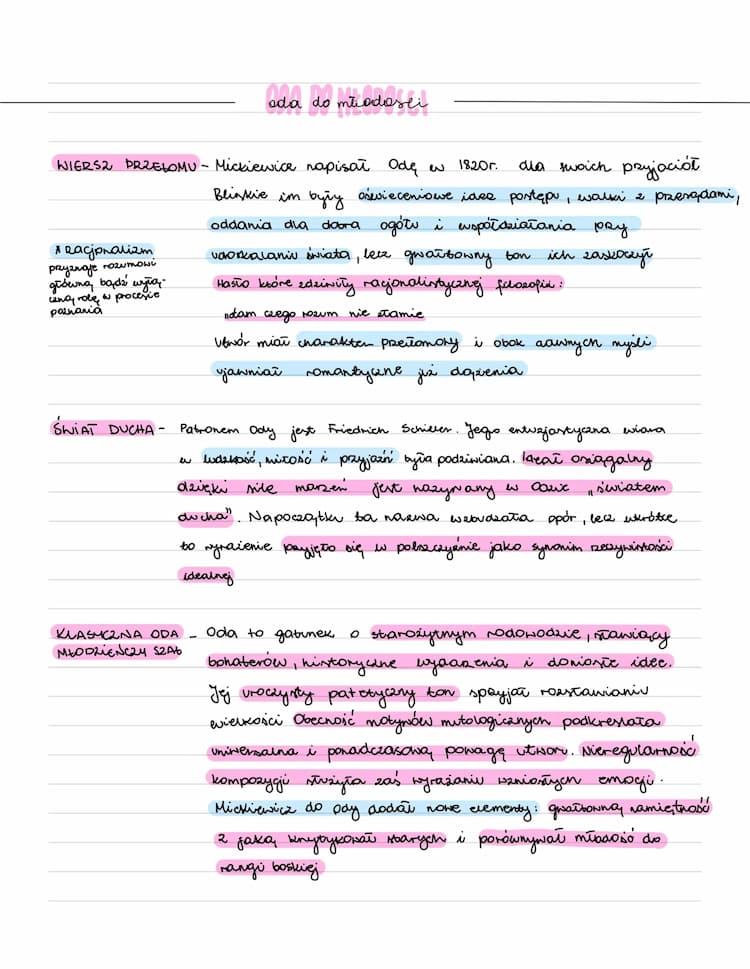 ODA DO MŁODOŚCI
oda do młodości
WIERSZ PRZEŁOMU - Mickiewicz napisał Odę w 1820r. dla swoich przyjaciół
Bliskie im były oświeceniowe idee postępu, walki z przesądami,
oddania dla dobra ogółu i współdziałania przy
udoskalaniu świata, lecz gwałtowny ton ich zaskoczył
* racjonalizm
przyznaje rozumowi
główną bądź wyłą-
czną rolę w procesie
poznania
Hasło które zdziwiły racjonalistycznej filozofii:
"dam czego rozum nie złamie
Utwór miał charakter przełomowy i obok dawnych myśli
ujawniał romantyczne już dążenia
ŚWIAT DUCHA - Patronem Ody jest Friedrich Schiller. Jego entuzjastyczna wiara
w ludzkość, miłość i przyjaźń była podziwiana. Ideał osiągalny
dzięki sile marzeń jest nazywany w Odzie "światem
ducha". Napoczątku ta nazwa wzbudzała opór, lecz wkrótce
to wyrażenie przyjęto się w polszczyźnie jako synonim rzeczywistości
idealnej
KLASYCZNA ODA - Oda to gatunek o starożytnym rodowodzie, sławiący
MŁODZIEŃCZY SZAŁ
bohaterów, historyczne wydarzenia i doniosłe idee.
Jej uroczysty patetyczny ton sprzyjał rozsławianiu
wielkości Obecność motywów mitologicznych podkreślała
uniwersalna i ponadczasową powagę utworu. Nieregularność
kompozycji służyła zaś wyrażaniu wzniosłych emocji.
Mickiewicz do Ody dodał nowe elementy: gwałtowną namiętność
z jaką krytykował starych i porównywał młodość do
rangi boskiej